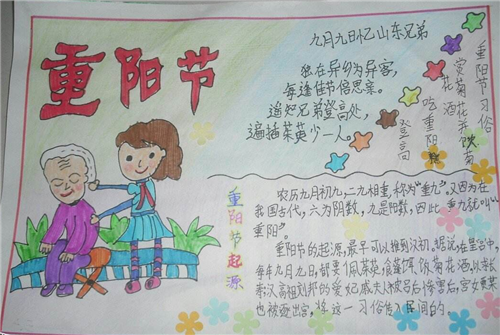 重阳节
九月九日忆山东兄弟
独在异乡为异客,
每逢佳节倍思亲。
遥知兄弟登高处,
遍插茱萸少一人。
重阳节习俗
赏菊花并饮菊
花酒
吃重阳
登高
重阳节起源
农历九月初九,二九相重,称为“重九”,又因为在
我国古代,六为阴数,九是阳数,因此,重九就叫“
重阳”。
重阳节的起源,最早可以推到汉初。据说,在皇宫中,
每年九月九日,都要佩茱萸,食蓬饵,饮菊花酒,以求长
汉高祖刘邦的爱妃戚夫人被吕后惨害后,宫女贾某
也被逐出宫,将这一习俗传入民间的